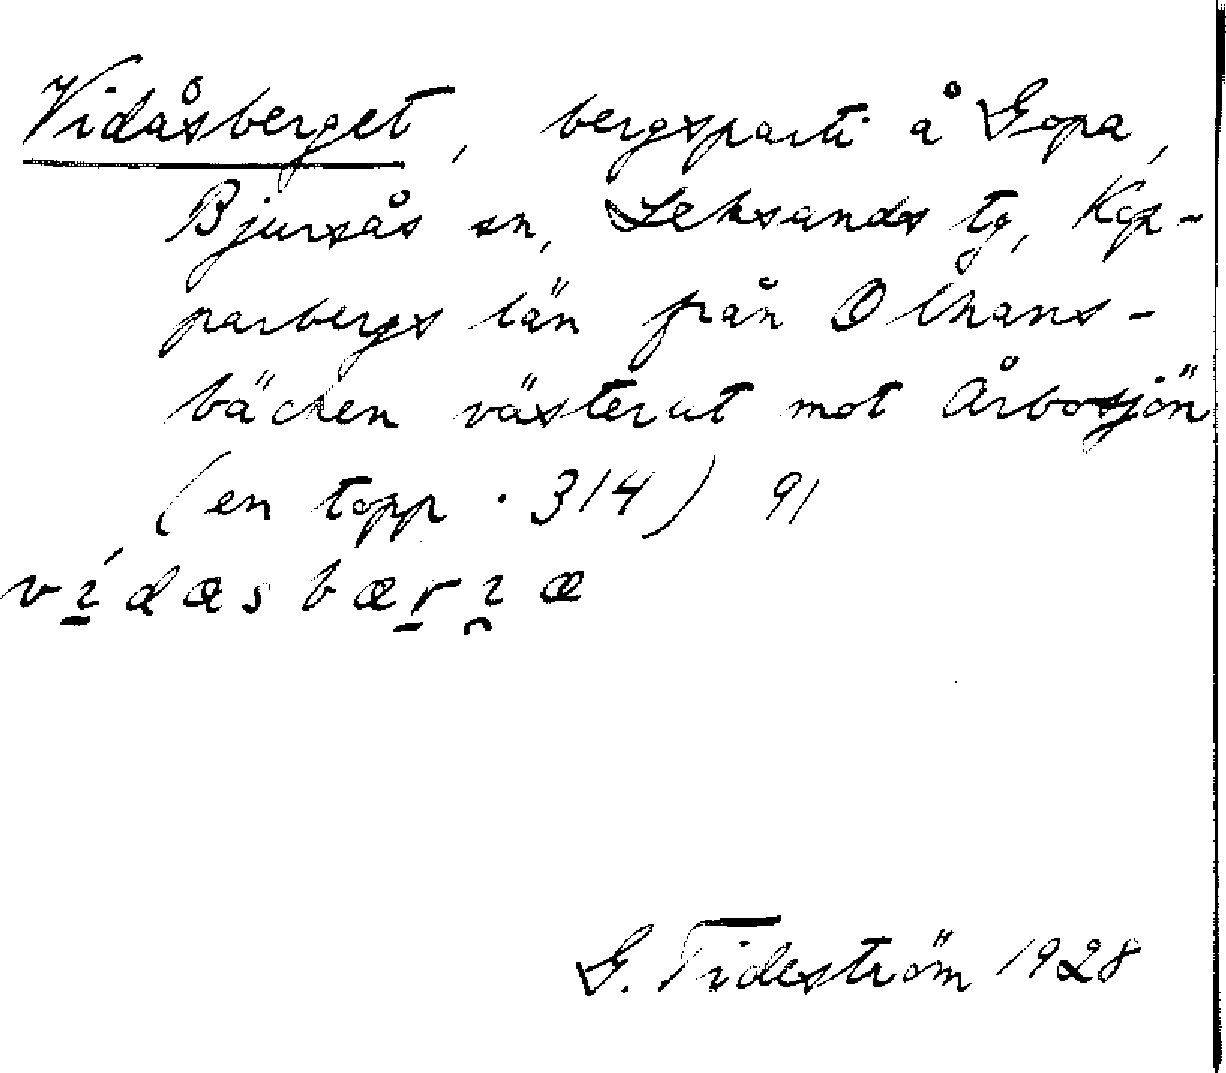 Vidåsberget, bergsparti å Gopa,
Bjursås sn, Leksands tg, Kop-
parbergs län från Olhans-
bäcken västerut mot Årbosjön
(en topp · 314) 91
G. Tideström 1928